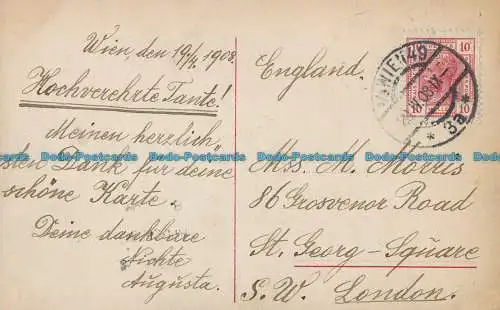 Wien, den 19/4. 1908.
Hochverehrte Tante!
Meinen herzlich"
sten Dank für deine
schöne Karte.
Deine dankbare
Nichte
Augusta.
England.
Mss. M. Morris
86 Grosvenor Road
St. Georg-Square
S. W. London.
10 10
10 10
WIEN
* 3a *
Dodo-Postcards Dodo-Postcards Dodo-Postcards Dodo-Postcards Dodo-Postcards